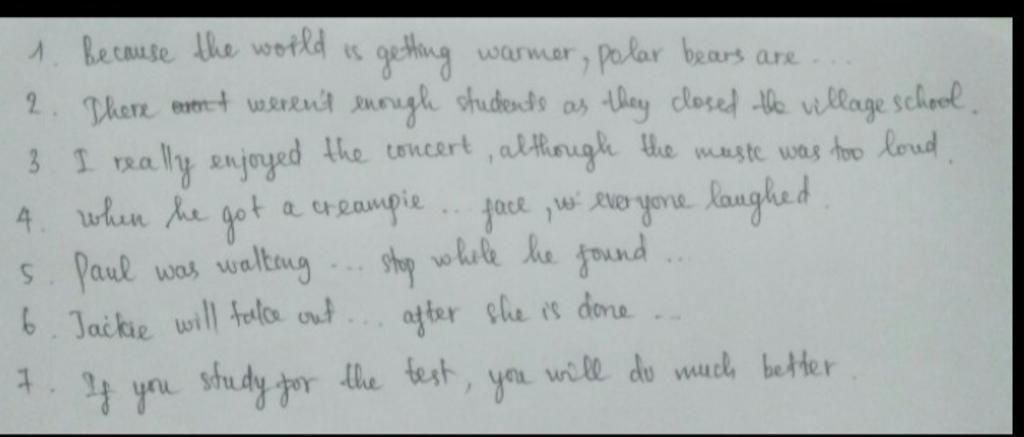 1. Because the world is getting warmer, polar bears are ...
2. There weren't enough students as they closed the village school.
3 I really enjoyed the concert, although the music was too loud.
4. when he got a creampie .. face, everyone laughed.
5. Paul was walking ... stop while he found ...
6. Jackie will take out ... after she is done ...
7. If you study for the test, you will do much better.